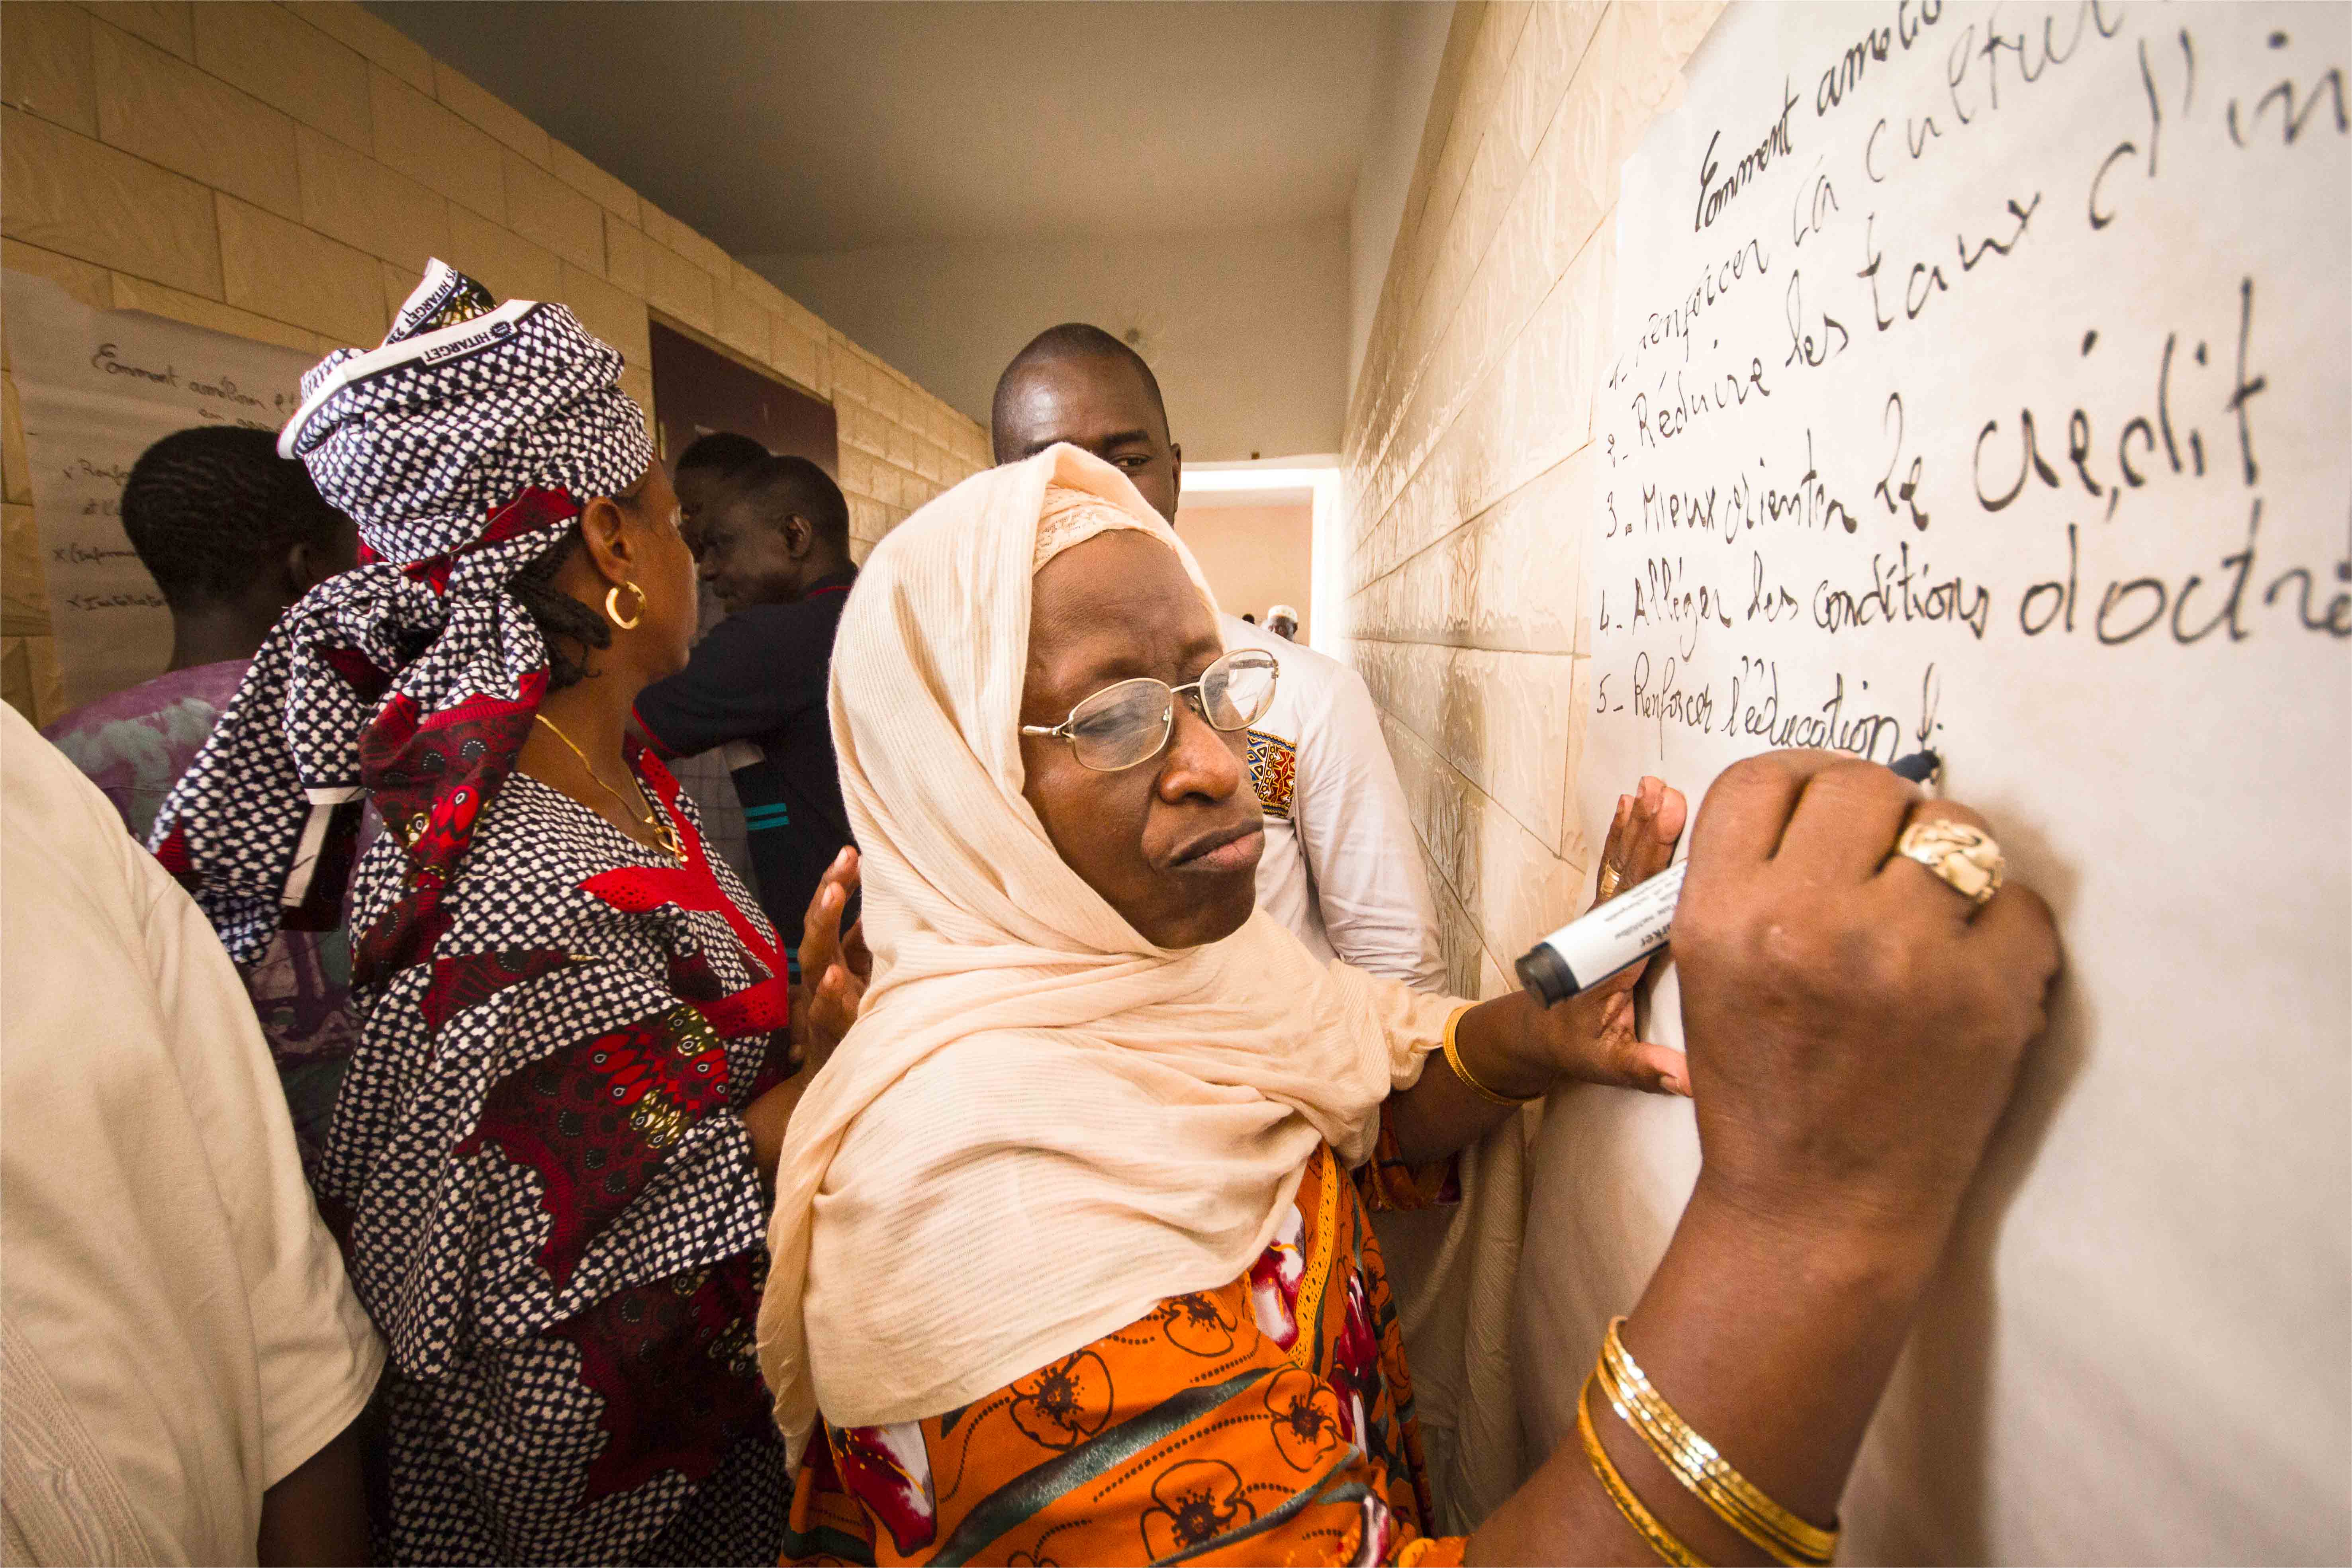 Comment amélio
1- renforcer la cultur
2- Réduire les taux d'in
3- Mieux orienter le crédit
4- Alléger les conditions d'octr
5- Renforcer l'éducation fi
Comment améliorer l'
en
x Renfo
et l'
x (Inform
x Installati
HITARGET
HITARGET 2
arker